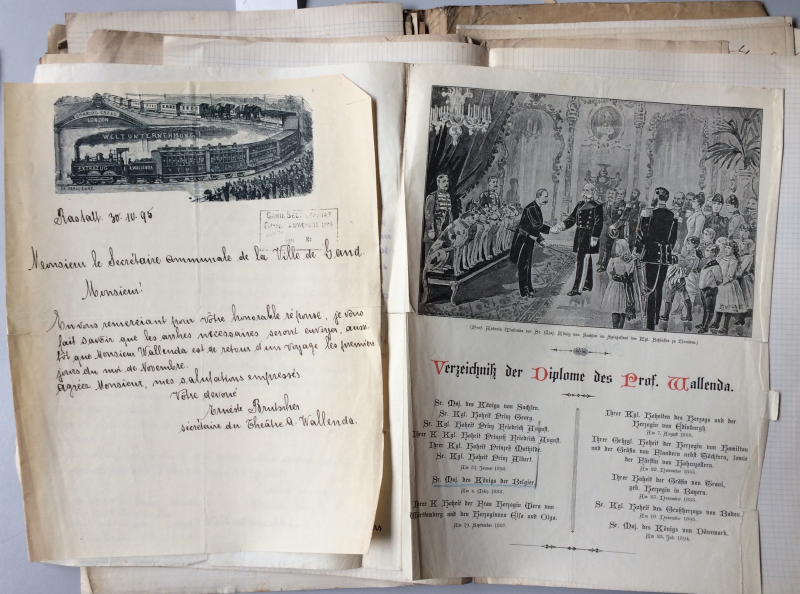 LONDON
WELTUNTERNEHMUNG
EXTRAZUG A. WALLENDA
Rastatt. 30.10.95
Monsieur le Secrétaire communale de la Ville de Gand.
Monsieur!
En vous remerciant pour votre honorable réponse, je vous
fait savoir que les arrhes nécessaires seront envoyer, aussi
tôt que Monsieur Wallenda est de retour d'un voyage les premiers
jours du moi de Novembre.
Agréez Monsieur, mes salutations empressés
Votre devoué
Erneste Brutscher
secrétaire du Théâtre A. Wallenda.
(Prof. Wallenda vor Sr. Maj. König von Sachsen im Spiegelsaal des Kgl. Schlosses zu Dresden.)
Verzeichniß der Diplome des Prof. Wallenda.
Sr. Maj. des Königs von Sachsen.
Sr. Kgl. Hoheit Prinz Georg.
Sr. Kgl. Hoheit Prinz Friedrich August.
Ihrer K. Kgl. Hoheit Prinzeß Friedrich August.
Ihrer Kgl. Hoheit Prinzeß Mathilde.
Sr. Kgl. Hoheit Prinz Albert.
Am Januar
Sr. Maj. des Königs der Belgier.
Am März
Ihrer K. Hoheit der Frau Herzogin Wera von
Württemberg und den Herzoginnen Elsa und Olga.
Am September
Ihrer Kgl. Hoheiten des Herzogs und der
Herzogin von Edinburgh.
Am August
Ihrer Hoheit der Herzogin von Hamilton
und der Gräfin von Flandern nebst Töchtern, sowie
der Fürstin von Hohenzollern.
Am November
Ihrer Hoheit der Gräfin von Trani,
geb. Herzogin in Bayern.
Am November
Sr. Kgl. Hoheit des Großherzogs von Baden.
Am November
Sr. Maj. des Königs von Dänemark.
Am Juli 1894.